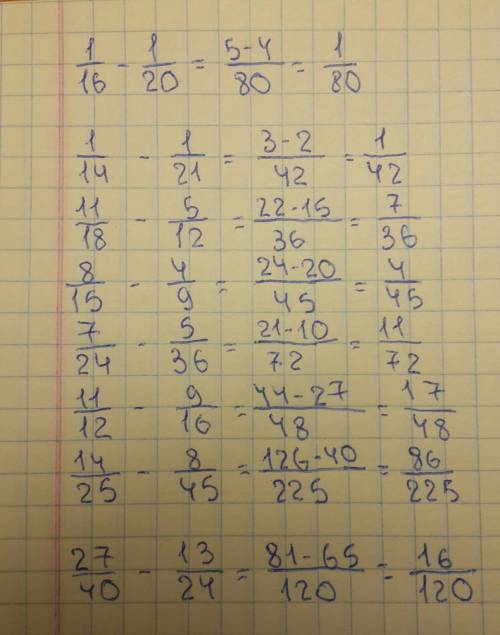 1/16 - 1/20 = 5-4/80 = 1/80
1/14 - 1/21 = 3-2/42 = 1/42
11/18 - 5/12 = 22-15/36 = 7/36
8/15 - 4/9 = 24-20/45 = 4/45
7/24 - 5/36 = 21-10/72 = 11/72
11/12 - 9/16 = 44-27/48 = 17/48
14/25 - 8/45 = 126-40/225 = 86/225
27/40 - 13/24 = 81-65/120 = 16/120